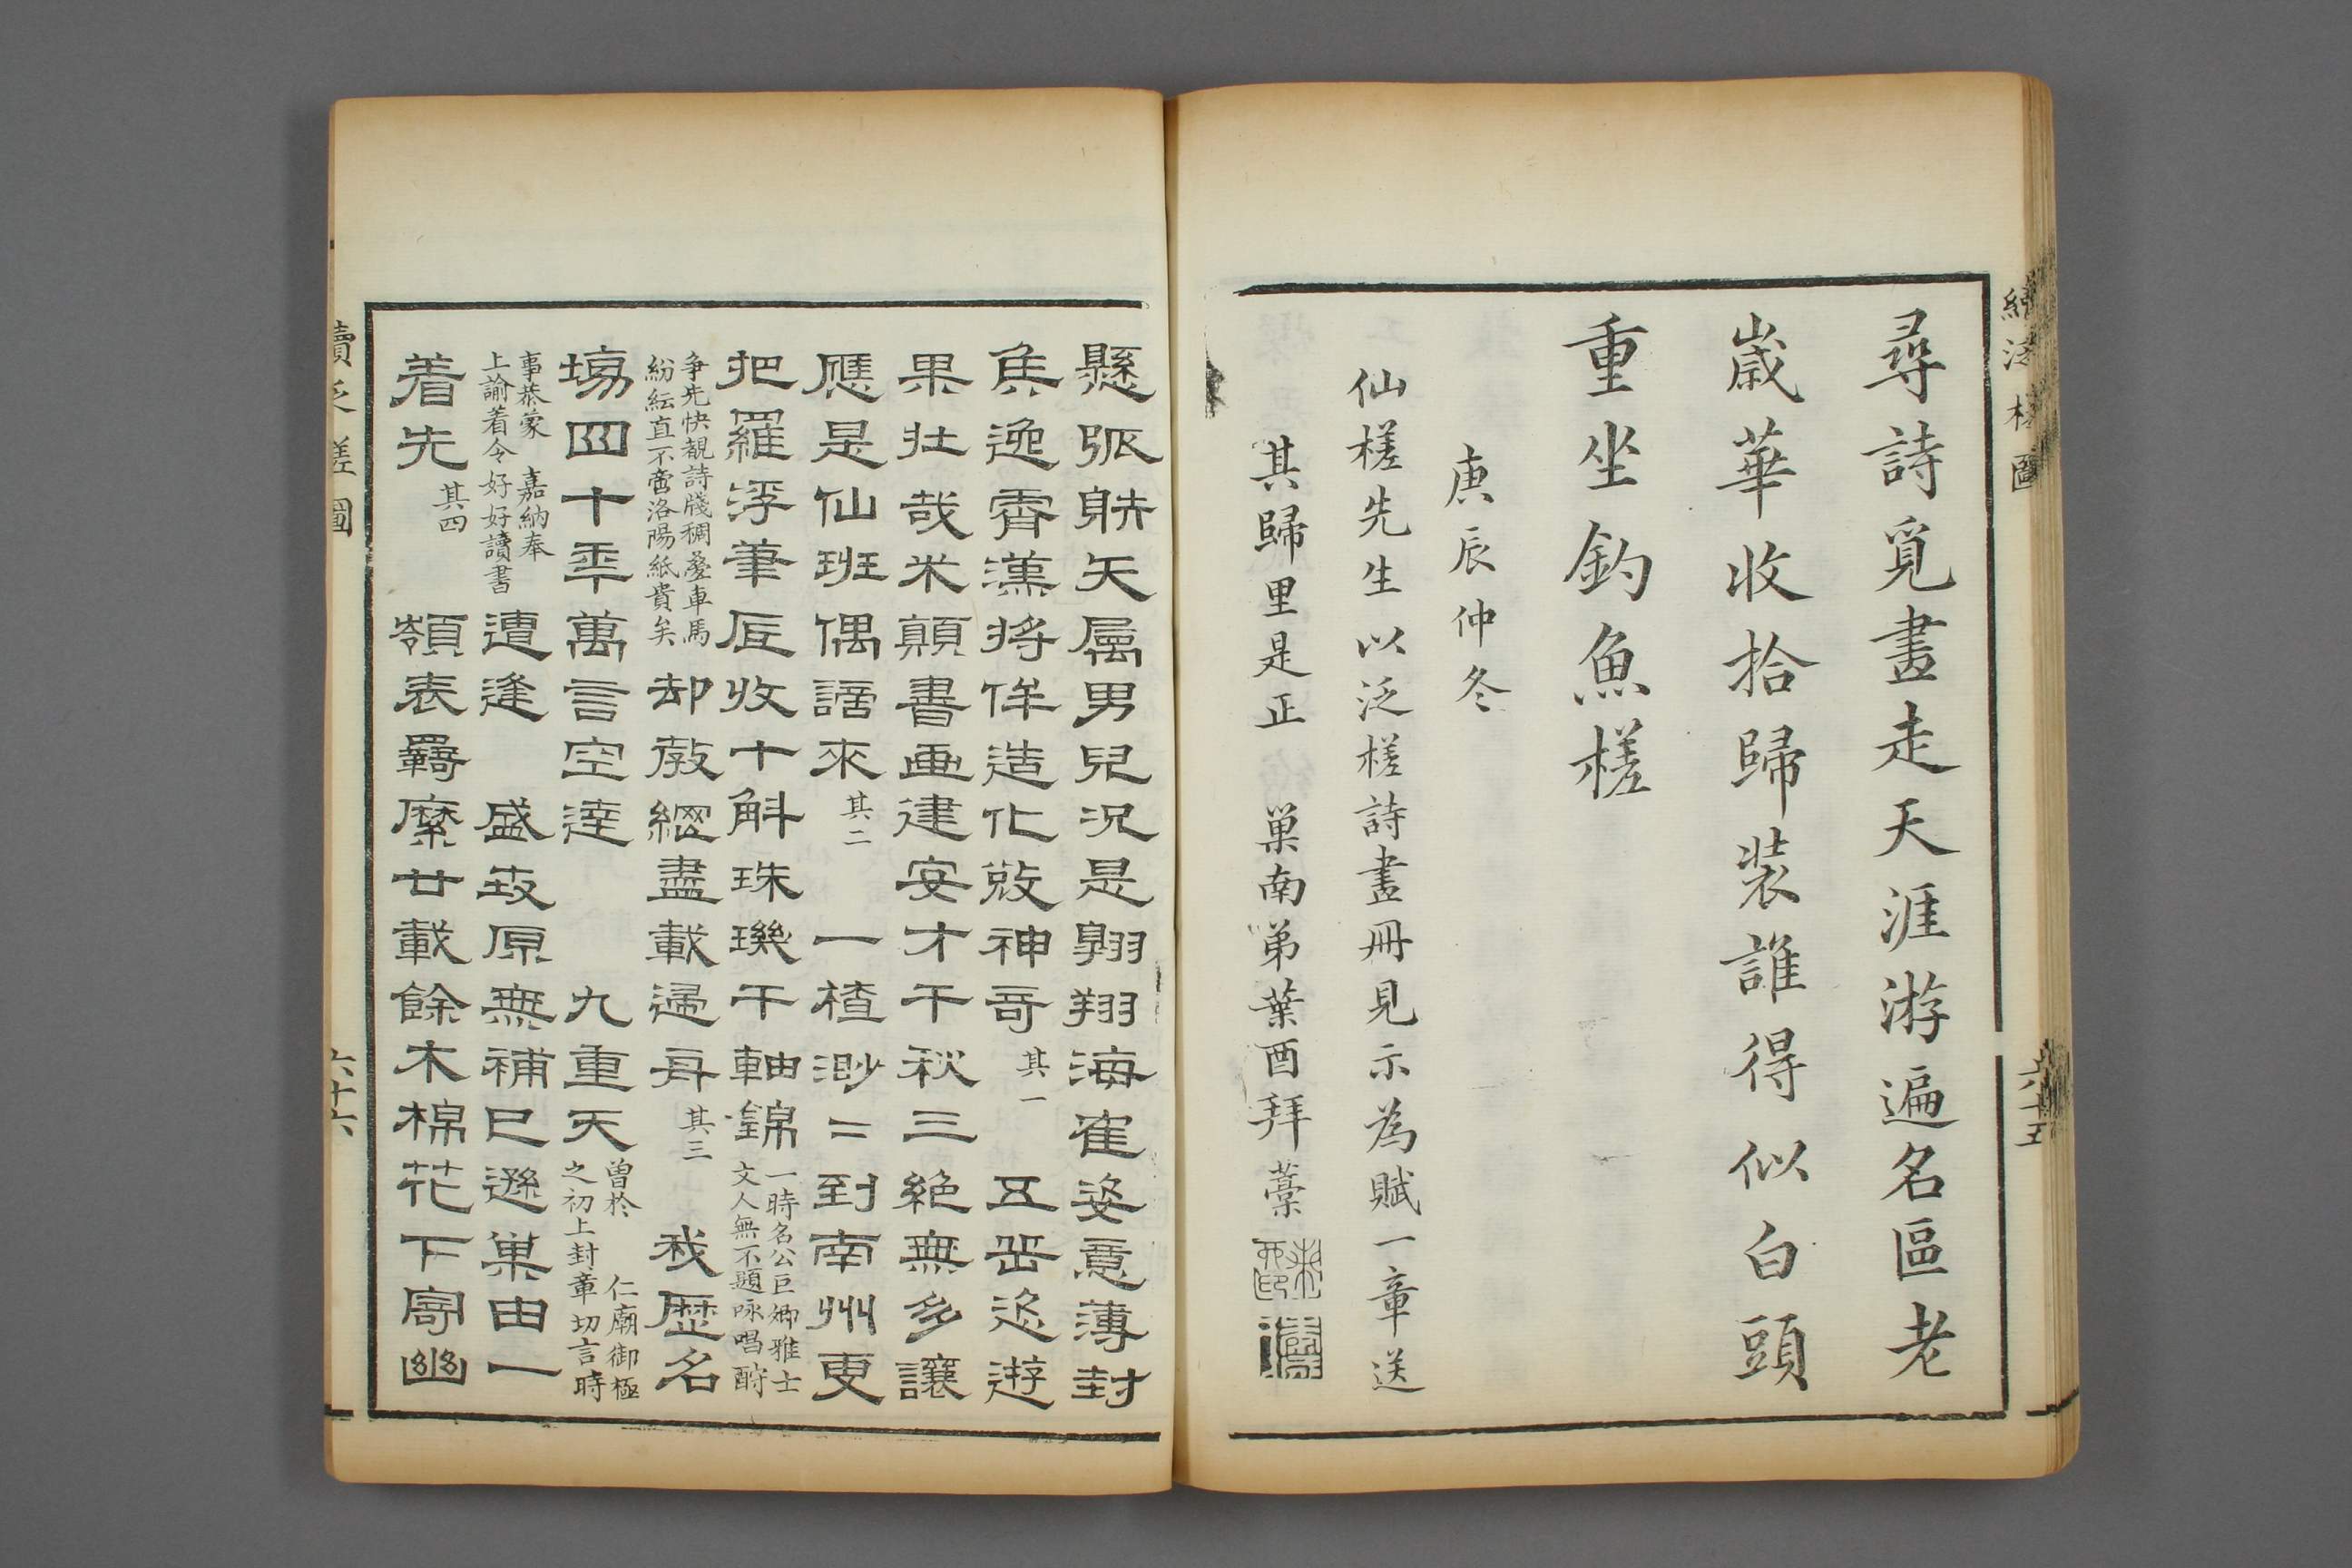 續泛槎圖
六十五
尋詩覓畫走天涯游遍名區老
歲華收拾歸裝誰得似白頭
重坐釣魚槎
庚辰仲冬
仙槎先生以泛槎詩畫冊見示為賦一章送
其歸里是正 巢南弟葉酉拜藁
懸弧躲矢屬男兒況是翱翔海崔姿意薄封
矦逸霄漢將侔造化
神哥 其一 五岳恣遊
果壮哉米顛書画建安才千秋三絶無多讓
應是仙班偶謫來 其二 一楂渺〻到南州更
把羅浮筆底收十斛珠璣千軸錦 一時名公巨卿雅士
文人無不題咏唱酧
爭先快覩詩牋稠疊車馬
紛紜直不啻洛陽紙貴矣 却教網盡載歸舟 其三 我歷名
塲四十年萬言空達 九重天 曾於 仁廟御極
之初上封章切言時
事恭蒙 嘉納奉
上諭着令好好讀書 遭逢 盛世原無補巳遜巢由一
着先 其四 嶺表羇縻廿載餘木棉花下寄幽
續泛槎圖
六十六